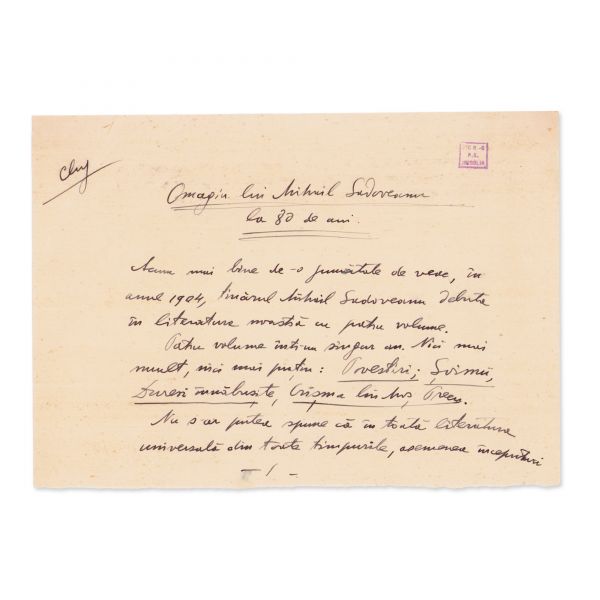 Cluj
Omagiu lui Mihail Sadoveanu
la 80 de ani.
Acum mai bine de-o jumătate de veac, în
anul 1904, tînărul Mihail Sadoveanu debuta
în literatura noastră cu patru volume.
Patru volume într-un singur an. Nici mai
mult, nici mai puțin: Povestiri; Șoimii;
Dureri înnăbușite, Crîșma lui Moș Precu.
Nu s-ar putea spune că în toată literatura
universală din toate timpurile, asemenea începuturi
- 1 -